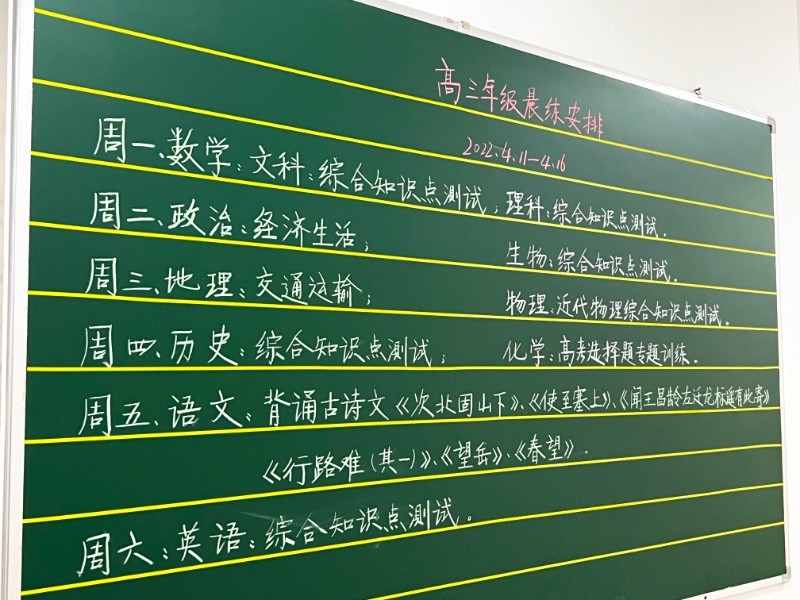 高三年级晨练安排
2022.4.11—4.16
周一、数学：文科：综合知识点测试；理科：综合知识点测试.
周二、政治：经济生活； 生物：综合知识点测试.
周三、地理：交通运输； 物理：近代物理综合知识点测试.
周四、历史：综合知识点测试； 化学：高考选择题专题训练.
周五、语文：背诵古诗文《次北固山下》、《使至塞上》、《闻王昌龄左迁龙标遥有此寄》
《行路难（其一）》、《望岳》、《春望》.
周六：英语：综合知识点测试。